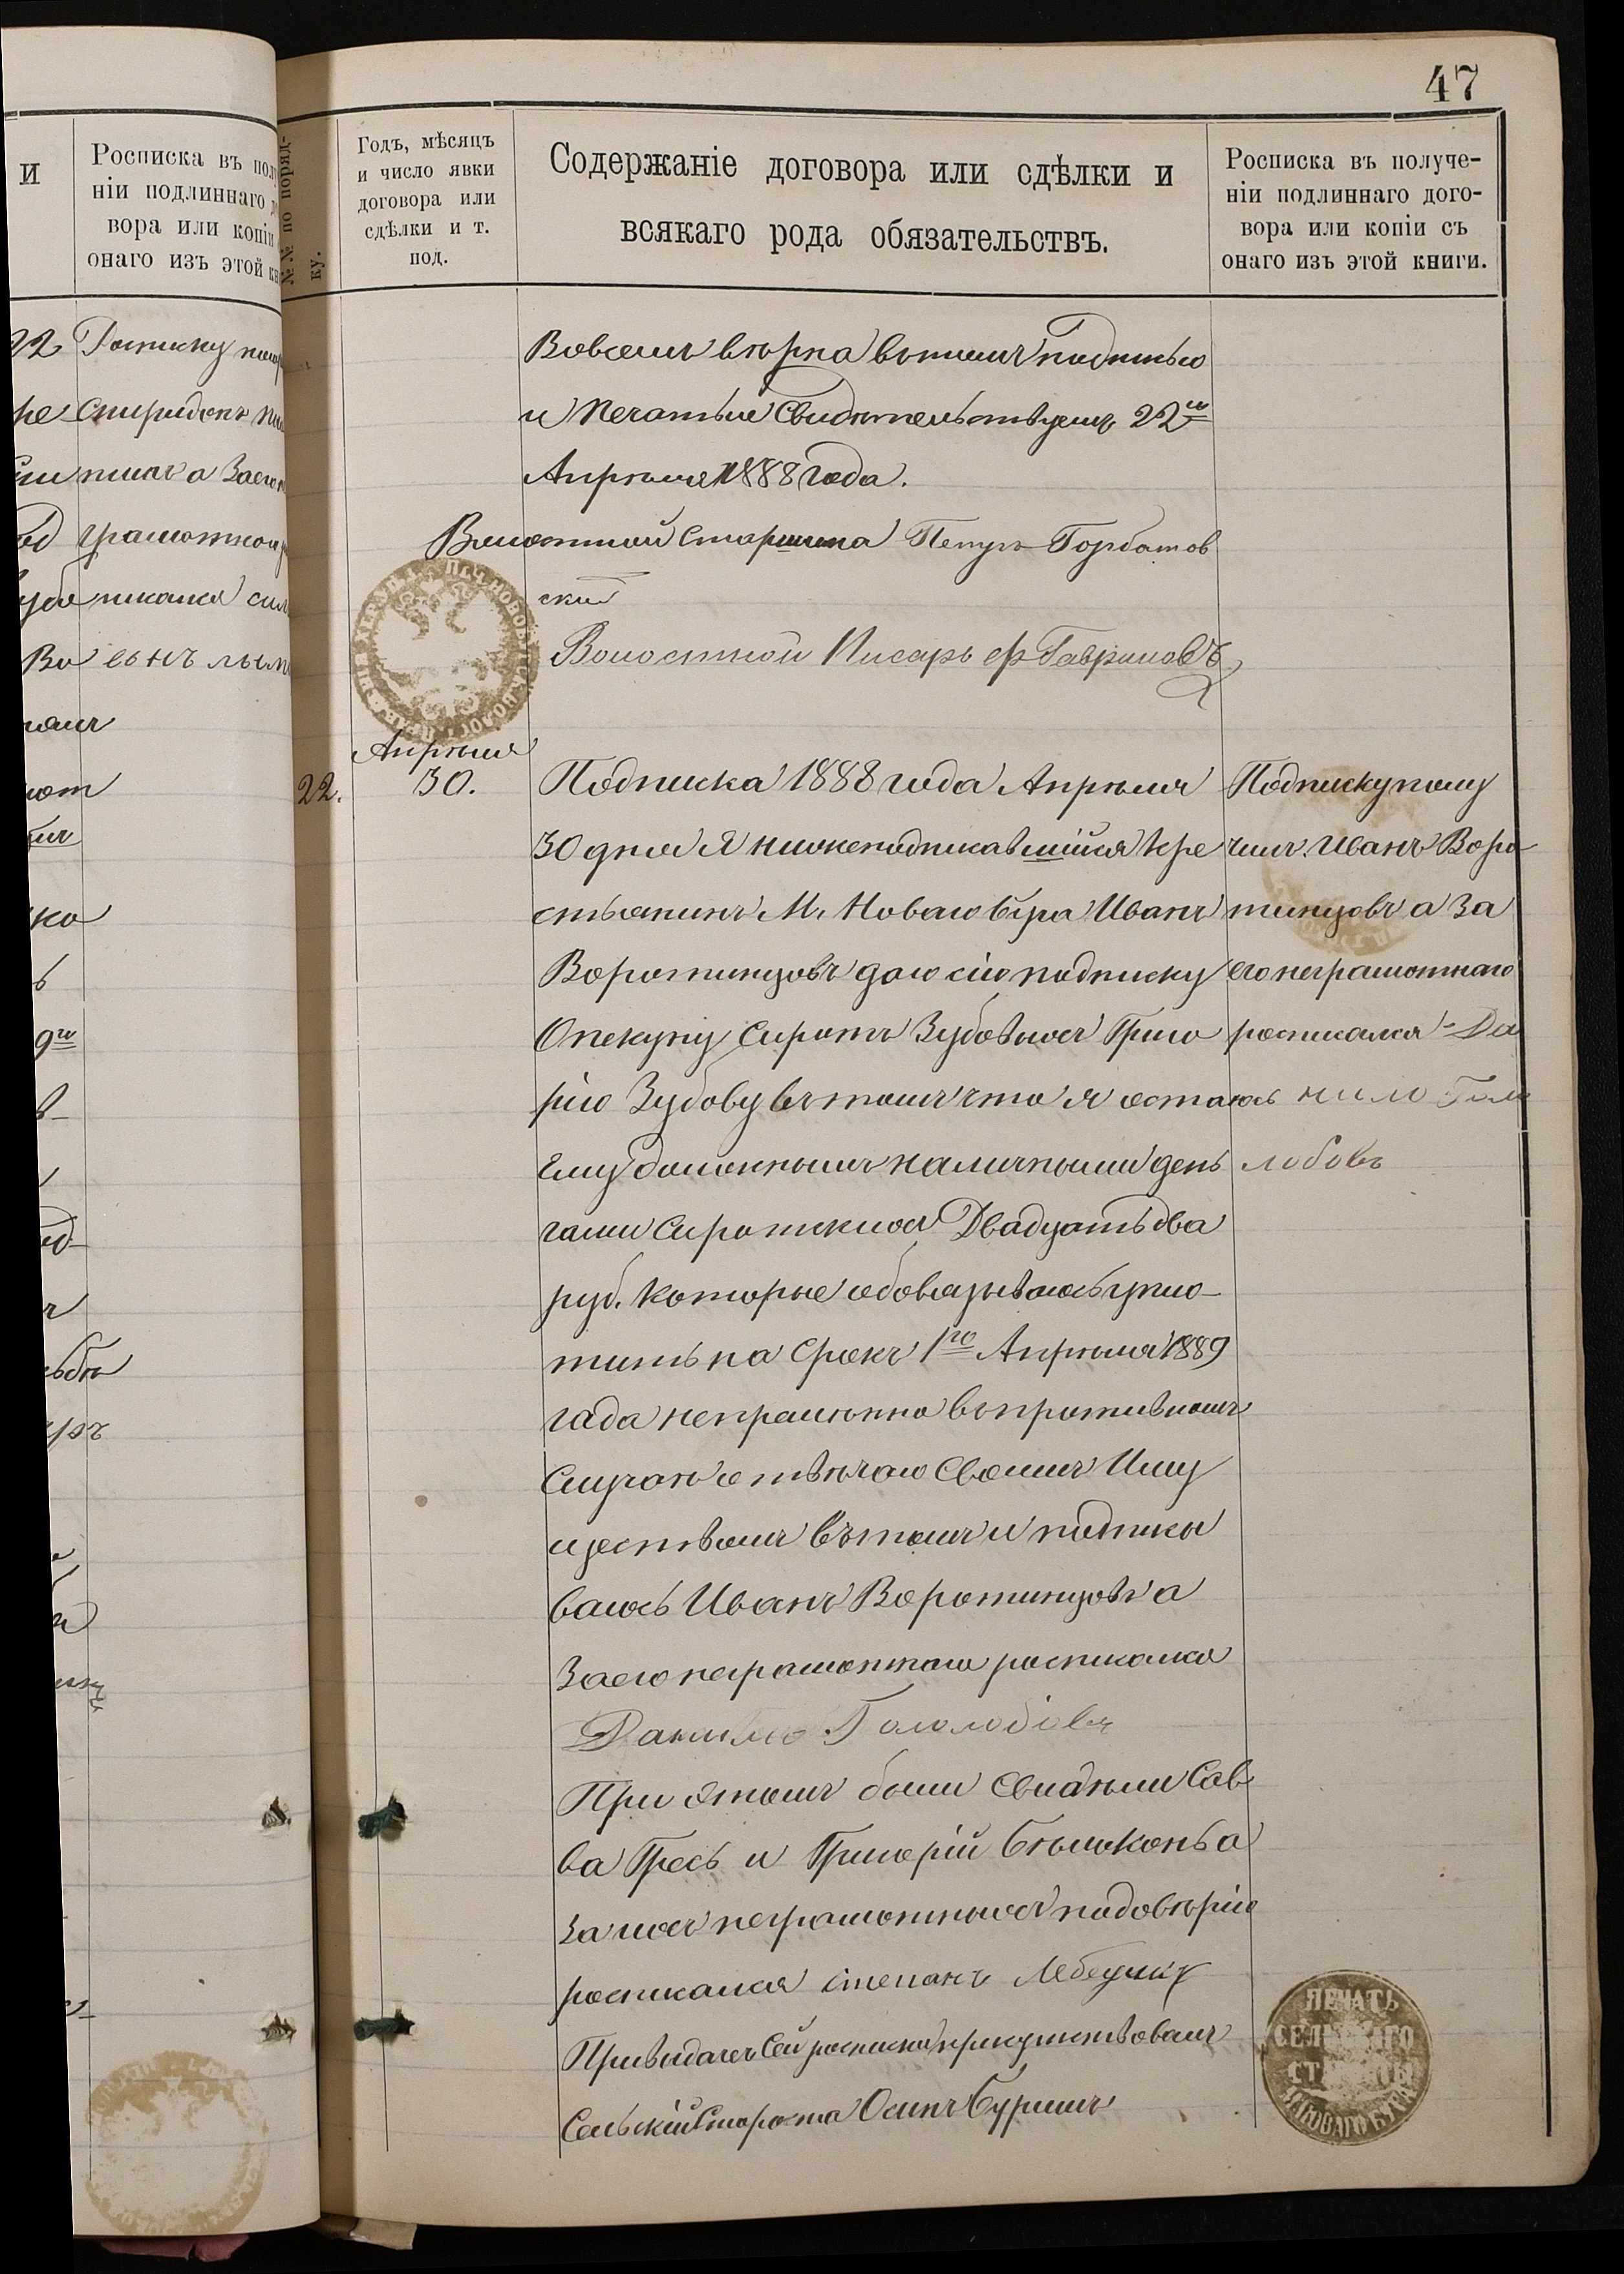 47
и
Росписка въ полу
ніи подлиннаго д
вора или копіи
онаго изъ этой кн
№№ по поряд-
ку.
Годъ, мѣсяцъ
и число явки
договора или
сдѣлки и т.
под.
Содержаніе договора или сдѣлки и
всякаго рода обязательствъ.
Росписка въ получе-
ніи подлиннаго дого-
вора или копіи съ
онаго изъ этой книги.
22 Росписку
Спиридонъ
а Заего
грамотнаго
Вовсемъ вѣрна вътомъ подписью
и Печатью Свидѣтельствуемъ 22го
Апрѣля 1888 года.
Волостной Старшина Петръ Горбатов
ский
Волостной Писарь Ф Гавриловъ
22.
Апрѣля
30.
Подписка 1888 года Апрѣля
30 дня Я нижеподписавшійся Кре
стьянинъ М. Новаго Буга Иванъ
Воротинцовъ даю сію подписку
Опекуну Сиротъ Зубовыхъ Григо
рію Зубову вътомъ что я остаюсь
Ему долженымъ наличными день
гами Сиротскихъ Двадцать два
руб. Которые обовязываюсь упло-
тить на Срокъ 1го Апрѣля 1889
года непремѣнно въпротивномъ
Случаи отвѣчаю Своимъ Иму
ществомъ вътомъ и подписы
ваюсь Иванъ Воротинцовъ а
Заего неграмотнаго росписался
Данило Гололобовъ
При этомъ были Свидѣтели Сав
ва Гресь и Григорій Бѣлоконь а
за ихъ неграмотныхъ подовѣрію
росписался степанъ
Привидачѣ Сей росписки присуттвовалъ
Сельскій Староста Осипъ
Подписку полу
чилъ Иванъ Воро
тинцовъ а За
его неграмотнаго
росписался Да
нило Голо
лобовъ
ПЕЧАТЬ
СЕЛЬСКАГО
СТАРОСТЫ
НОВАГО БУГА